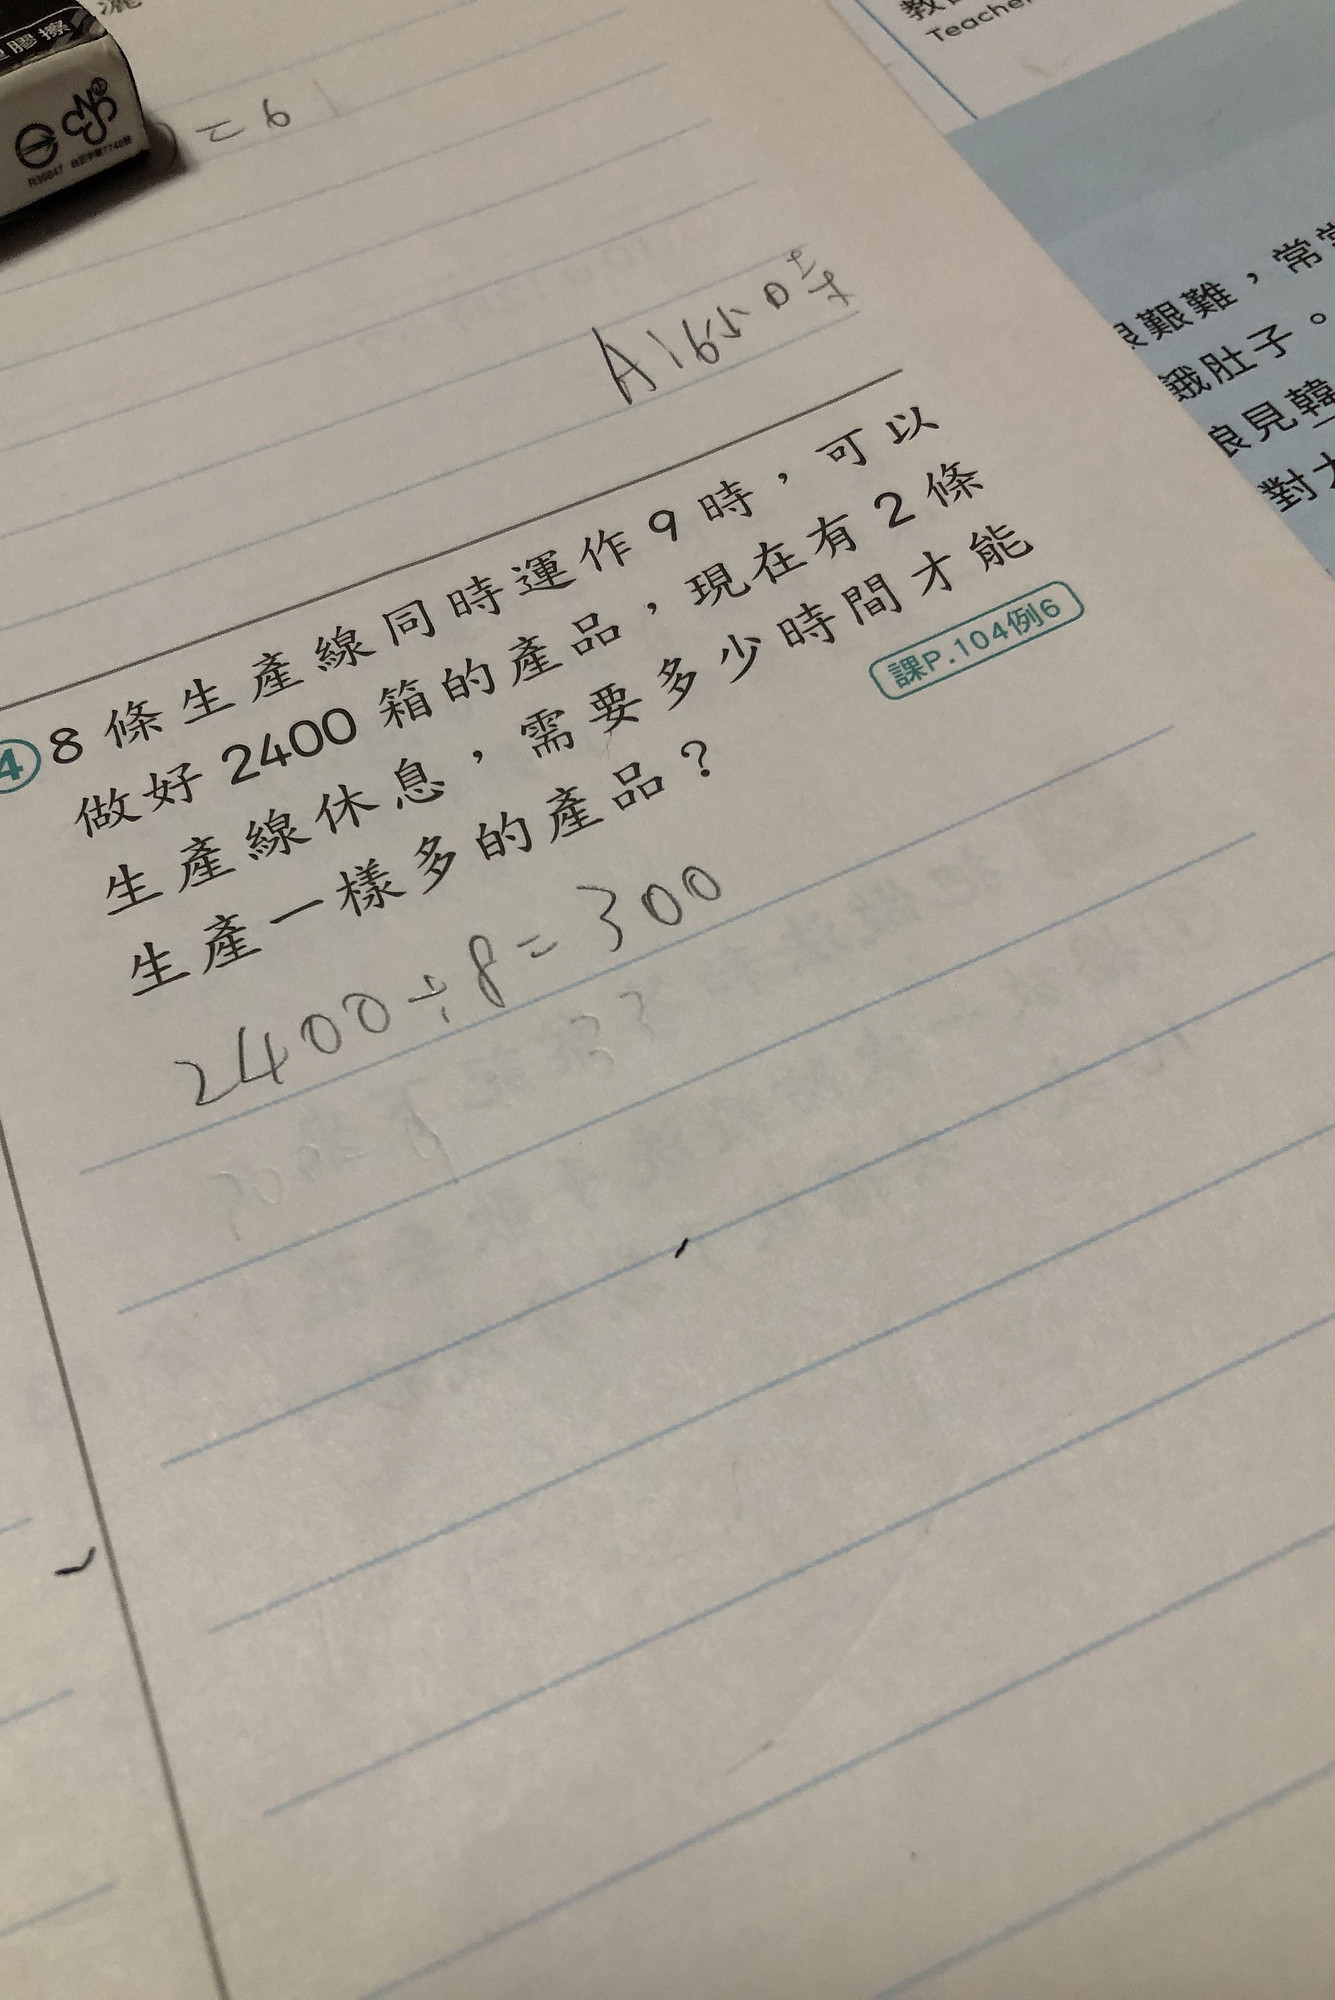 膠擦
CNS
R39847 台正字第7740號
= 61
A16小時
4 8 條生產線同時運作 9 時，可以
做好 2400 箱的產品，現在有 2 條
生產線休息，需要多少時間才能
生產一樣多的產品？
課P.104例6
2400÷8=300
Teacher
艱難，常常
餓肚子。
見韓
對